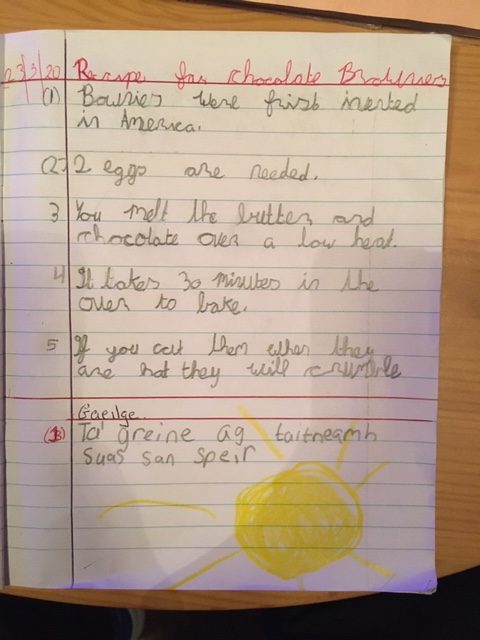 23/3/20 Recipe for chocolate Brownies
(1) Bownies were frist inented
in America.
(2) 2 eggs are needed.
3 You melt the butter and
chocolate over a low heat.
4 It takes 30 minutes in the
oven to bake.
5 If you cut them when they
are hot they will crumble
Gaeilge.
(1) Tá greine ag taitneamh
suas san speir